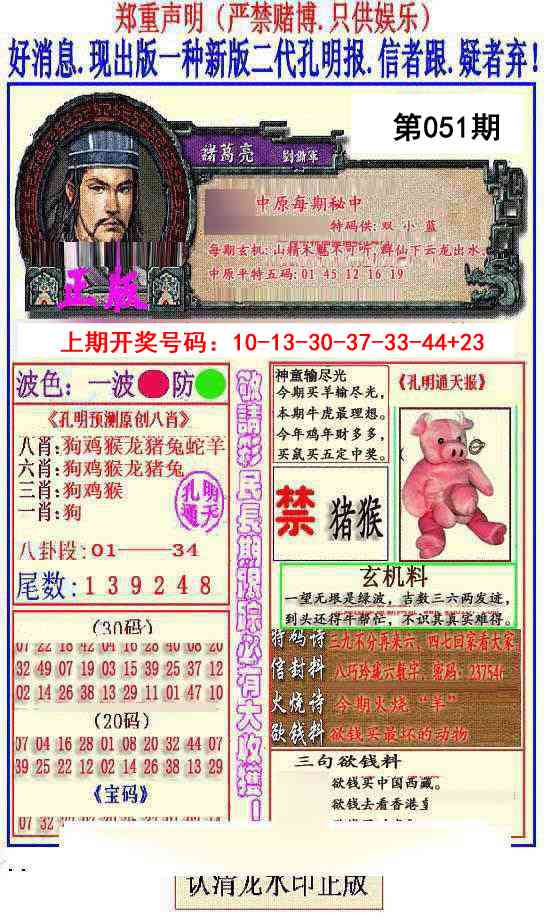 郑重声明（严禁赌博.只供娱乐）
好消息.现出版一种新版二代孔明报.信者跟.疑者弃!
第051期
諸葛亮
中原每期秘中
特码供:双 小 蓝
群仙下云龙出水.
中原平特五码:01 45 12 16 19
正版
上期开奖号码：10-13-30-37-33-44+23
波色：一波 防
《孔明预测原创八肖》
八肖:狗鸡猴龙猪兔蛇羊
六肖:狗鸡猴龙猪兔
三肖:狗鸡猴
一肖:狗
孔明
通天
八卦段:01——34
尾数:139248
(30码)
07 22 18 42 04 16 28 40 08 20
32 49 07 19 03 15 39 45 21 22
02 14 26 38 13 29 11 01 47 10
(20码)
07 04 16 28 01 08 20 32 44 07
39 25 22 12 02 14 26 38 13 29
《宝码》
07 32
敬請彩民長期跟踪必有大收獲！
神童输尽光
今期买羊输尽光,
本期牛虎最理想。
今年鸡年财多多,
买鼠买五定中奖。
《孔明通天报》
禁 猪猴
玄机料
一望无垠是绿波，吉数三六两发迹，
到头还得牛帮忙，不识真真实难得。
特码诗 三九不分再来六，四七回家看大家
信封料 八巧玲珑六载字，密码：23754
火烧诗 今期火烧“羊”
欲钱料 欲钱买最坏的动物
三句欲钱料
欲钱买中国西藏。
欲钱去看香港
认清龙水印正版